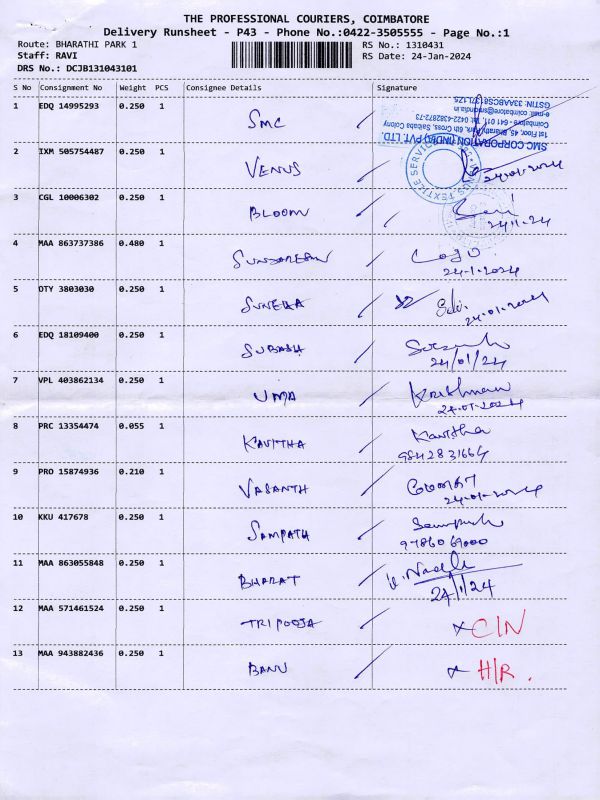 THE PROFESSIONAL COURIERS, COIMBATORE
Delivery Runsheet - P43 - Phone No.:0422-3505555 - Page No.:1
Route: BHARATHI PARK 1 RS No.: 1310431
Staff: RAVI RS Date: 24-Jan-2024
DRS No.: DCJB131043101
S No Consignment No Weight PCS Consignee Details Signature
1 EDQ 14995293 0.250 1 SMC
SMC CORPORATION (INDIA) PVT. LTD.
1st Floor, 45, Bharathi Park, 6th Cross, Saibaba Colony
Coimbatore - 641 011. Tel: 0422-4382872-73
2 IXM 505754487 0.250 1 VENUS 24-01-2024
VENUS TEXTILE SERVICE
3 CGL 10006302 0.250 1 BLOOM
24/1/24
4 MAA 863737386 0.480 1
24-1-2024
5 OTY 3803030 0.250 1 SUNEKA
24-01-2024
6 EDQ 18109400 0.250 1 SUBASH
24/01/24
7 VPL 403862134 0.250 1 UMA Krishnan
24-01-2024
8 PRC 13354474 0.055 1 KAVITHA Kavitha
9842831664
9 PRO 15874936 0.210 1 VASANTH
24-01-2024
10 KKU 417678 0.250 1 SAMPATH Sampath
9786069000
11 MAA 863055848 0.250 1 BHARAT
24/1/24
12 MAA 571461524 0.250 1 TRIPOOJA × C/N
13 MAA 943882436 0.250 1 BANU × H/R.